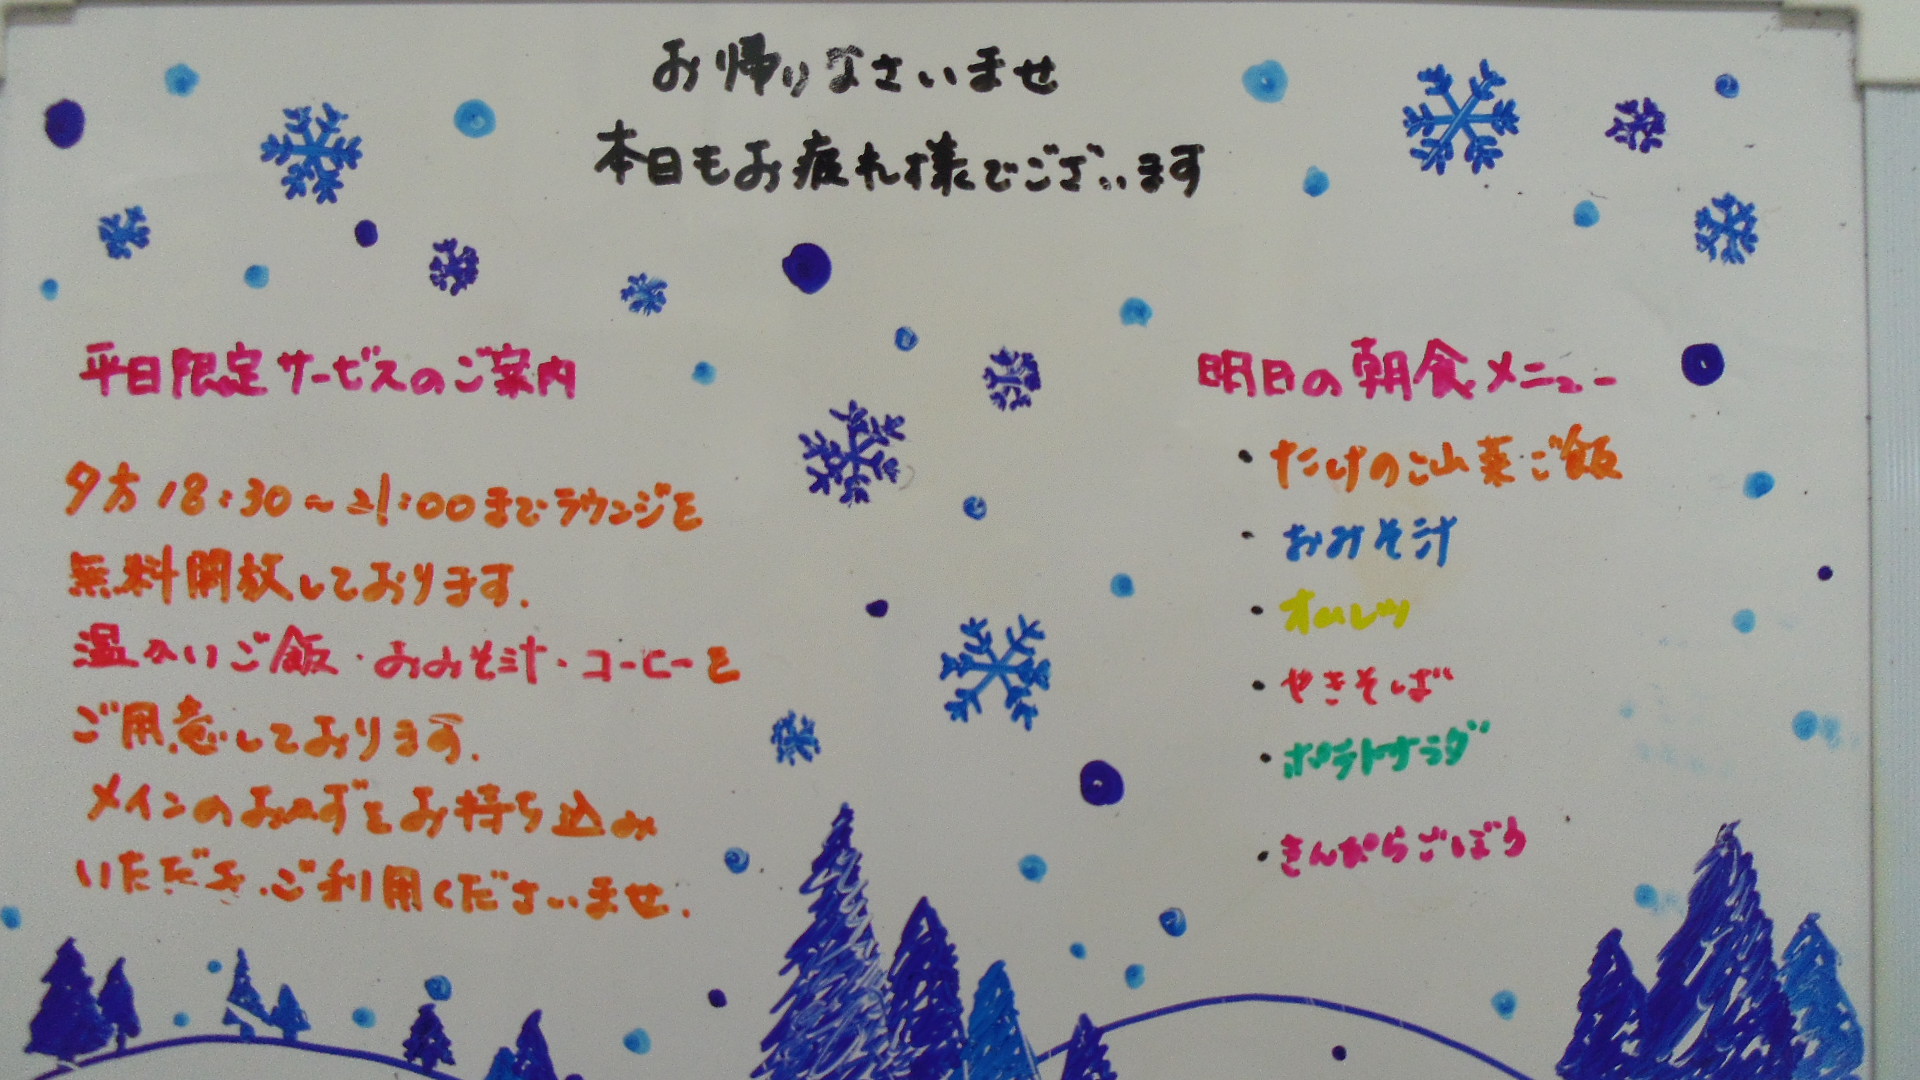 お帰りなさいませ
本日もお疲れ様でございます
平日限定サービスのご案内
夕方18:30～21:00までラウンジを
無料開放しております.
温かいご飯・おみそ汁・コーヒーを
ご用意しております.
メインのおかずをお持ち込み
いただき、ご利用くださいませ.
明日の朝食メニュー
・たけのこ山菜ご飯
・おみそ汁
・オムレツ
・やきそば
・ポテトサラダ
・きんぴらごぼう